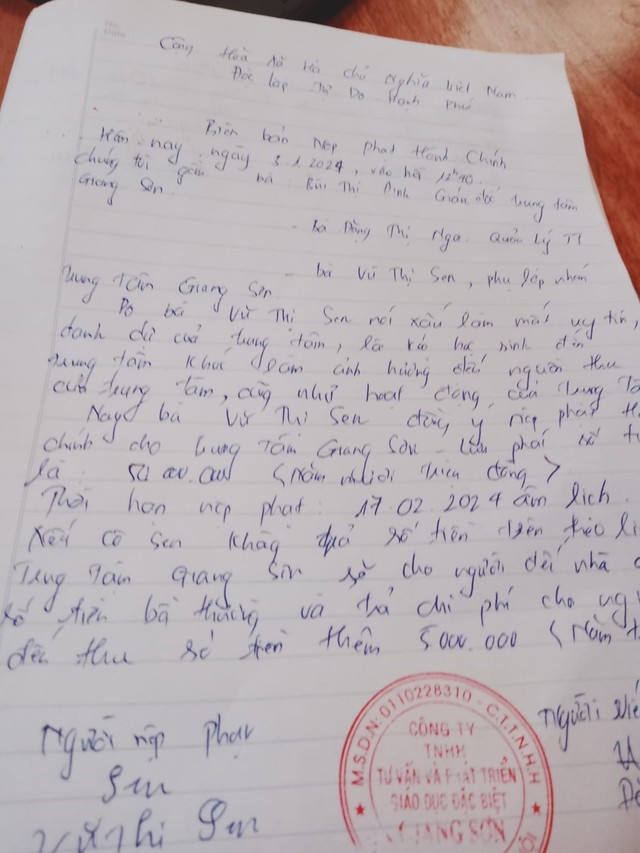 Cộng Hoà Xã Hội chủ Nghĩa Việt Nam
Độc lập Tự Do Hạnh Phúc
Biên bản Nộp phạt Hành Chính
Hôm nay ngày 3.1.2024, vào hồi 12h10.
chúng tôi gồm bà Bùi Thị Định Giám đốc trung tâm
Giang Sơn.
- Bà Đồng Thị Nga. Quản Lý TT
- bà Vũ Thị Sen, phụ lớp nhóm
trung tâm Giang Sơn
Do bà Vũ Thị Sen nói xấu làm mất uy tín,
danh dự của trung tâm, lôi kéo học sinh đến
trung tâm khác làm ảnh hưởng đến nguồn thu
của trung tâm, cũng như hoạt động của trung tâ
Nay bà Vũ Thị Sen đồng ý nộp phạt
chính cho trung tâm Giang Sơn phạt số
là 50.000.000 (Năm mươi triệu đồng)
Thời hạn nộp phạt: 17.02.2024 âm lịch.
Nếu cô Sen không trả số tiền trên theo
Trung tâm Giang Sơn sẽ cho người đến nhà
số tiền bồi thường và trả chi phí cho
đến thu số tiền thêm 5.000.000 (Năm
Người nộp phạt
Sen
Vũ Thị Sen
Người
M.S.D.N: 0110228310 - C.T.T.N.H.H
CÔNG TY
TNHH
TƯ VẤN VÀ PHÁT TRIỂN
GIÁO DỤC ĐẶC BIỆT
GIANG SƠN